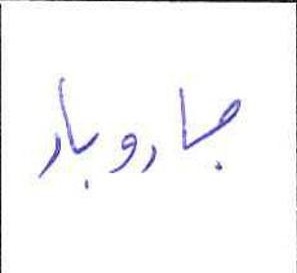 جاروبار